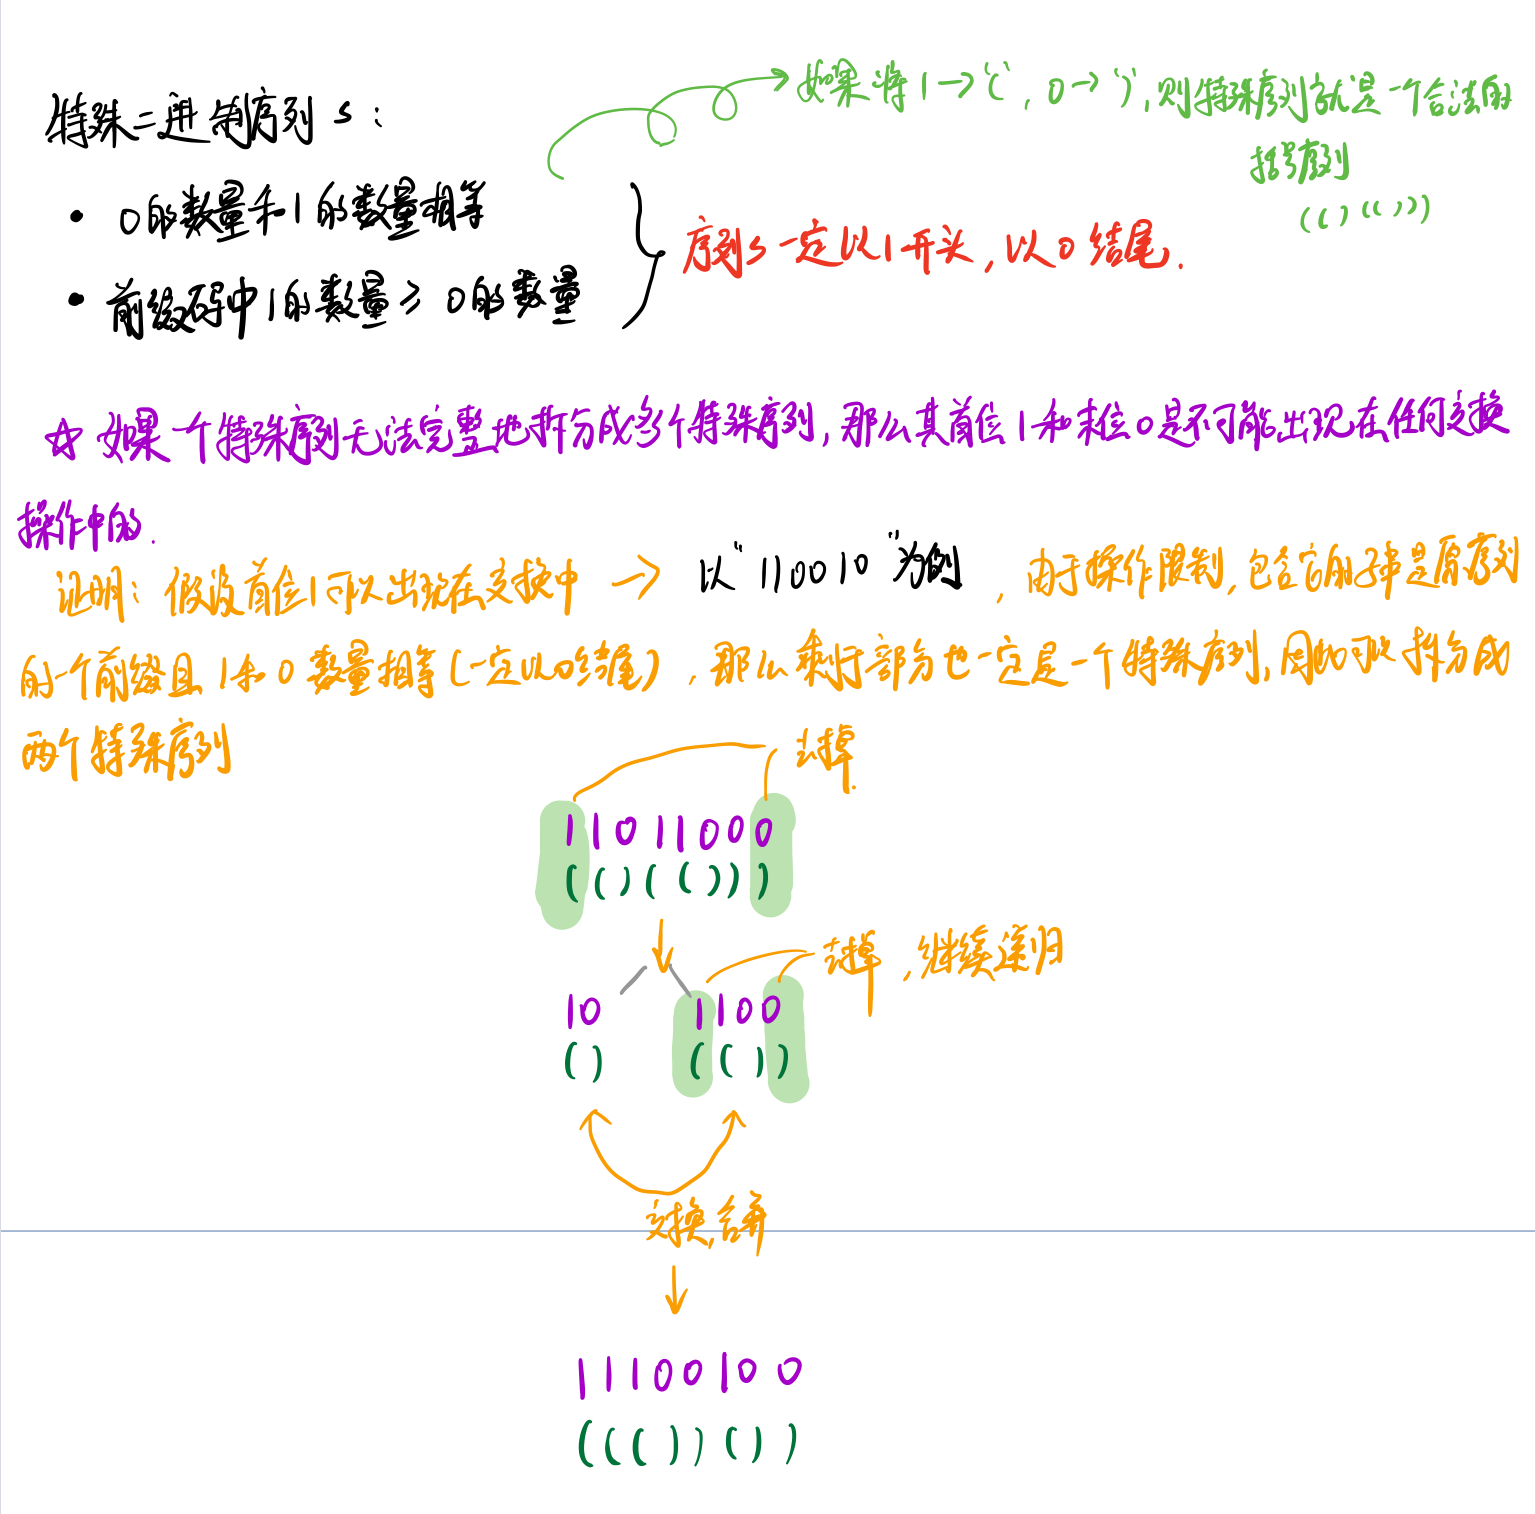 如果将1→'(', 0→')',则特殊序列就是一个合法的
括号序列
(()(()))
特殊二进制序列 s:
• 0的数量和1的数量相等
• 前缀码中1的数量 ≥ 0的数量
序列s一定以1开头,以0结尾.
☆ 如果一个特殊序列无法完整地拆分成多个特殊序列,那么其首位1和末位0是不可能出现在任何交换
操作中的.
证明: 假设首位1可以出现在交换中 → 以"110010"为例 ,由于操作限制,包含它的子串是原序列
的一个前缀且1和0数量相等(一定以0结尾),那么剩余部分也一定是一个特殊序列,因此可以拆分成
两个特殊序列
去掉.
11011000
(()(()))
去掉,继续递归
10 1100
() (())
交换,合并
11100100
((())())